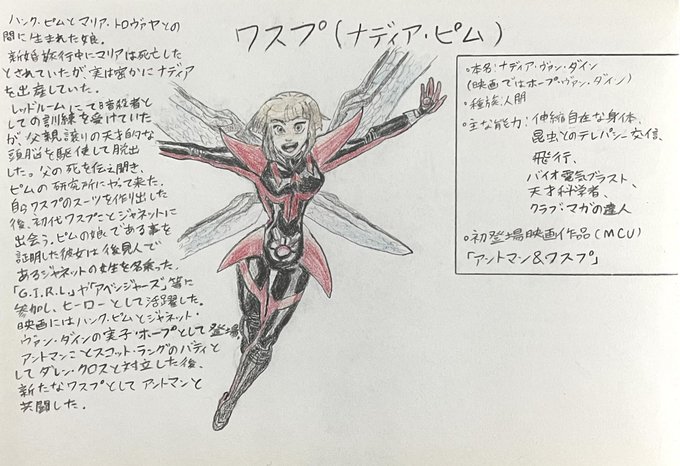 ワスプ(ナディア・ピム)
ハンク・ピムとマリア・トロヴァヤとの
間に生まれた娘.
新婚旅行中にマリアは死亡した
とされていたが実は密かにナディア
を出産していた.
レッドルームにて暗殺者と
しての訓練を受けていた
が、父親譲りの天才的な
頭脳を駆使して脱出
した。父の死を伝え聞き、
ピムの研究所にやって来た.
自らワスプのスーツを作り出した
後、初代ワスプことジャネットに
出会う。ピムの娘である事を
証明した彼女は後見人で
あるジャネットの姓を名乗った.
「G.I.R.L.」や「アベンジャーズ」等に
参加し、ヒーローとして活躍した.
映画にはハンク・ピムとジャネット・
ヴァン・ダインの実子・ホープとして登場.
アントマンことスコット・ラングのバディと
してダレン・クロスと対立した後、
新たなワスプとしてアントマンと
共闘した.
・本名:ナディア・ヴァン・ダイン
(映画ではホープ・ヴァン・ダイン)
・種族:人間
・主な能力:伸縮自在な身体、
昆虫とのテレパシー交信、
飛行、
バイオ電気ブラスト、
天才科学者、
クラブ・マガの達人
・初登場映画作品(MCU)
「アントマン&ワスプ」